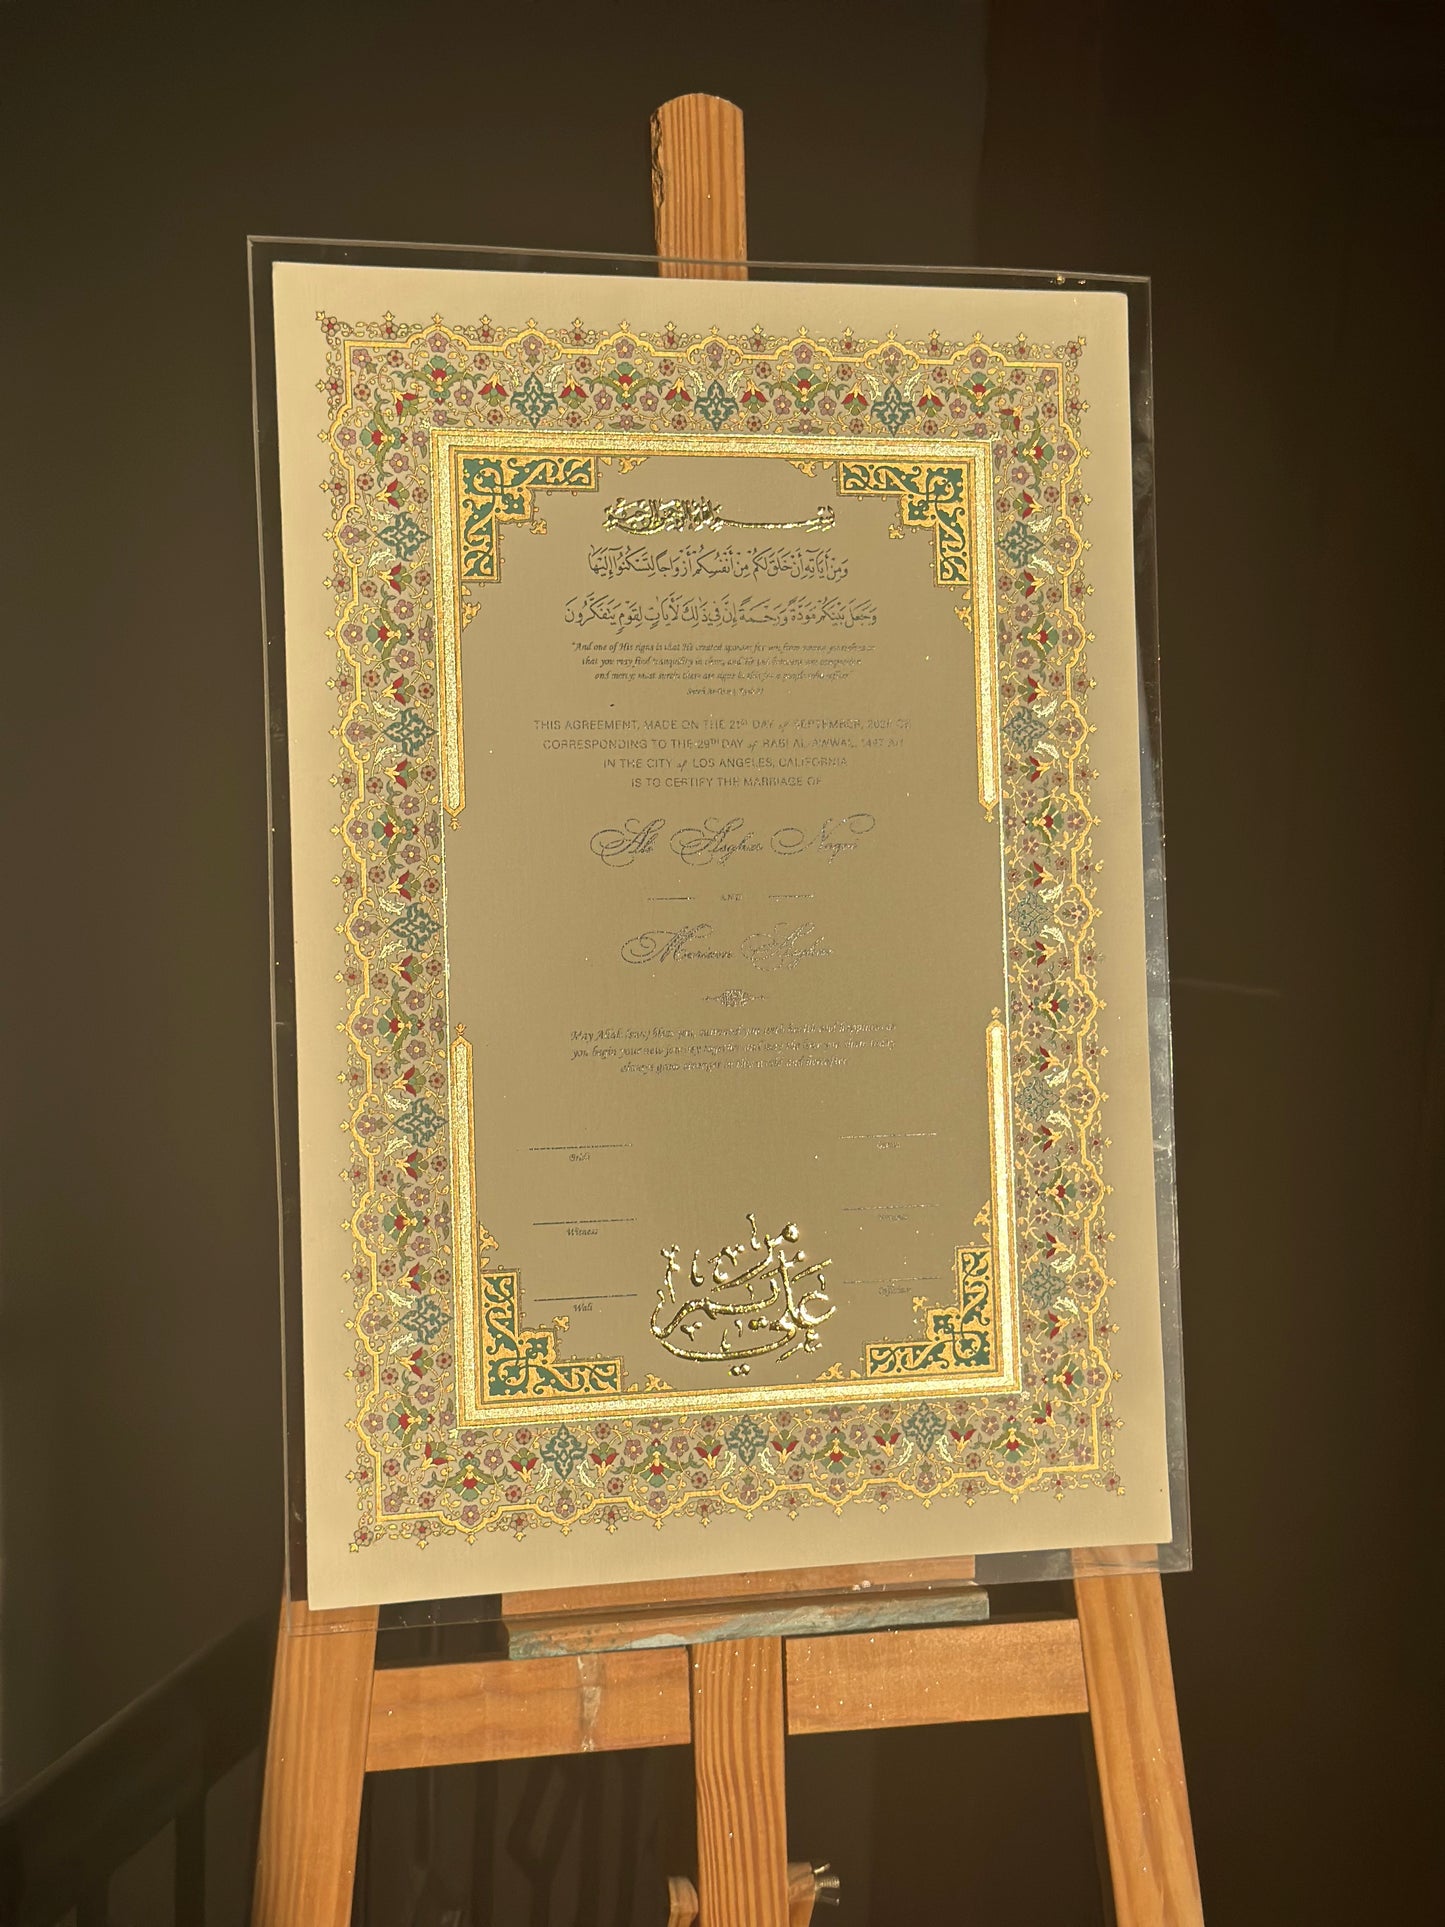 بسم الله الرحمن الرحيم
وَمِنْ آيَاتِهِ أَنْ خَلَقَ لَكُمْ مِنْ أَنْفُسِكُمْ أَزْوَاجًا لِتَسْكُنُوا إِلَيْهَا
وَجَعَلَ بَيْنَكُمْ مَوَدَّةً وَرَحْمَةً إِنَّ فِي ذَٰلِكَ لَآيَاتٍ لِقَوْمٍ يَتَفَكَّرُونَ
"And one of His signs is that He created spouses for you from among yourselves so
that you may find tranquility in them, and He
and mercy; most surely there are signs in this for a people who reflect"
THIS AGREEMENT, MADE ON THE 21ST DAY of SEPTEMBER, 2025 CE
CORRESPONDING TO THE 29TH DAY of RABI AL-AWWAL, 1447 AH
IN THE CITY of LOS ANGELES, CALIFORNIA
IS TO CERTIFY THE MARRIAGE OF
Ali Asghar Naqvi
AND
Mariam
May Allah (swt) bless you, surround you with health and happiness as
you begin your new journey together and may the love you share today
always grow stronger in this world and hereafter
Bride
Witness
Wali
Officiant